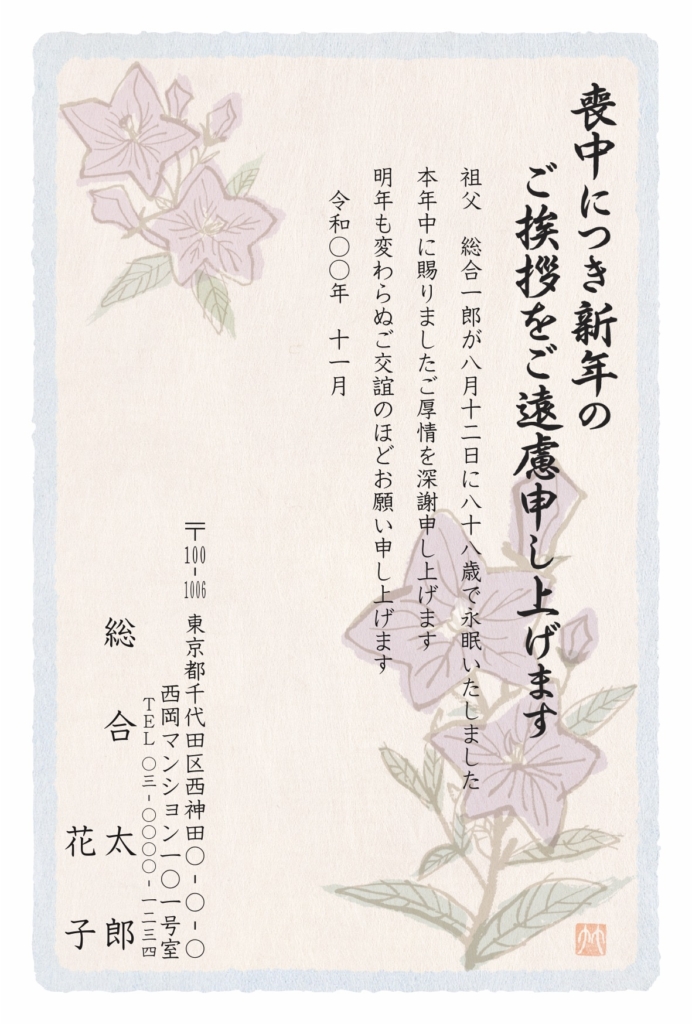 喪中につき新年の
ご挨拶をご遠慮申し上げます
祖父　総合一郎が八月十二日に八十八歳で永眠いたしました
本年中に賜りましたご厚情を深謝申し上げます
明年も変わらぬご交誼のほどお願い申し上げます
令和〇〇年　十一月
〒100-1006　東京都千代田区西神田〇-〇-〇
西岡マンション一〇一号室
TEL 〇三-〇〇〇〇-一二三四
総合太郎
花子